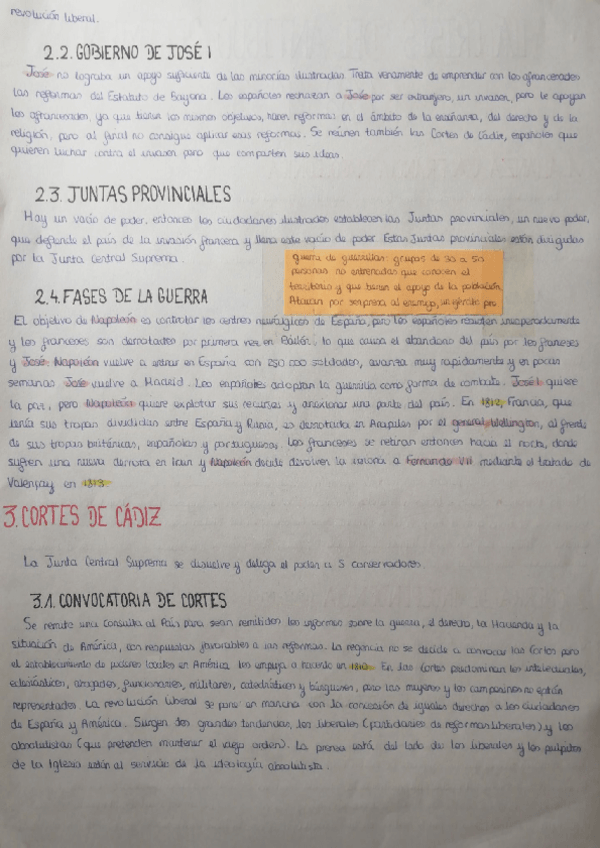 revolución liberal.
2.2. GOBIERNO DE JOSÉ I
José no lograba un apoyo suficiente de las minorías ilustradas. Trata vanamente de emprender con los afrancesados
las reformas del Estatuto de Bayona. Los españoles rechazan a José por ser extranjero, un invasor, pero le apoyan
los afrancesados, ya que tienen los mismos objetivos, hacen reformas en el ámbito de la enseñanza, del derecho y de la
religión, pero al final no consigue aplicar esas reformas. Se reúnen también las Cortes de Cádiz, españoles que
quieren luchar contra el invasor pero que comparten sus ideas.
2.3. JUNTAS PROVINCIALES
Hay un vacío de poder, entonces los ciudadanos ilustrados establecen las Juntas provinciales, un nuevo poder,
que defiende el país de la invasión francesa y llena este vacío de poder. Estas Juntas provinciales están dirigidas
por la Junta Central Suprema.
guerra de guerrillas: grupos de 35 a 50
personas no entrenadas que conocen el
territorio y que tienen el apoyo de la población.
Atacan por sorpresa al enemigo,
2.4. FASES DE LA GUERRA
El objetivo de Napoleón es controlar los centros neurálgicos de España, pero los españoles resisten inesperadamente
y los franceses son derrotados por primera vez en Bailén, lo que causa el abandono del país por los franceses
y José. Napoleón vuelve a entrar en España con 250 000 soldados, avanza muy rapidamente y en pocas
semanas José vuelve a Madrid. Los españoles adoptan la guerrilla como forma de combate. José I quiere
la paz, pero Napoleón quiere explotar sus recursos y anexionar una parte del país. En 1812, Francia, que
tenía sus tropas divididas entre España y Rusia, es derrotada en Arapiles por el general Wellington, al frente
de sus tropas británicas, españolas y portuguesas. Los franceses se retiran entonces hacia el norte, donde
sufren una nueva derrota en Irún y Napoleón decide devolver la corona a Fernando VII mediante el tratado de
Valençay en 1813.
3. CORTES DE CÁDIZ
La Junta Central Suprema se disuelve y delega el poder a 5 conservadores.
3.1. CONVOCATORIA DE CORTES
Se remite una consulta al País para sean remitidos los informes sobre la guerra, el derecho, la Hacienda y la
situación de América, con respuestas favorables a las reformas. La regencia no se decide a convocar las Cortes pero
el establecimiento de poderes locales en América los empuja a hacerlo en 1810. En las Cortes predominan los intelectuales,
eclesiásticos, abogados, funcionarios, militares, catedráticos y burgueses, pero las mujeres y los campesinos no están
representados. La revolución liberal se pone en marcha con la concesión de iguales derechos a los ciudadanos
de España y América. Surgen dos grandes tendencias, los liberales (partidarios de reformas liberales) y los
absolutistas (que pretenden mantener el viejo orden). La prensa está del lado de los liberales y los púlpitos
de la Iglesia están al servicio de la ideología absolutista.